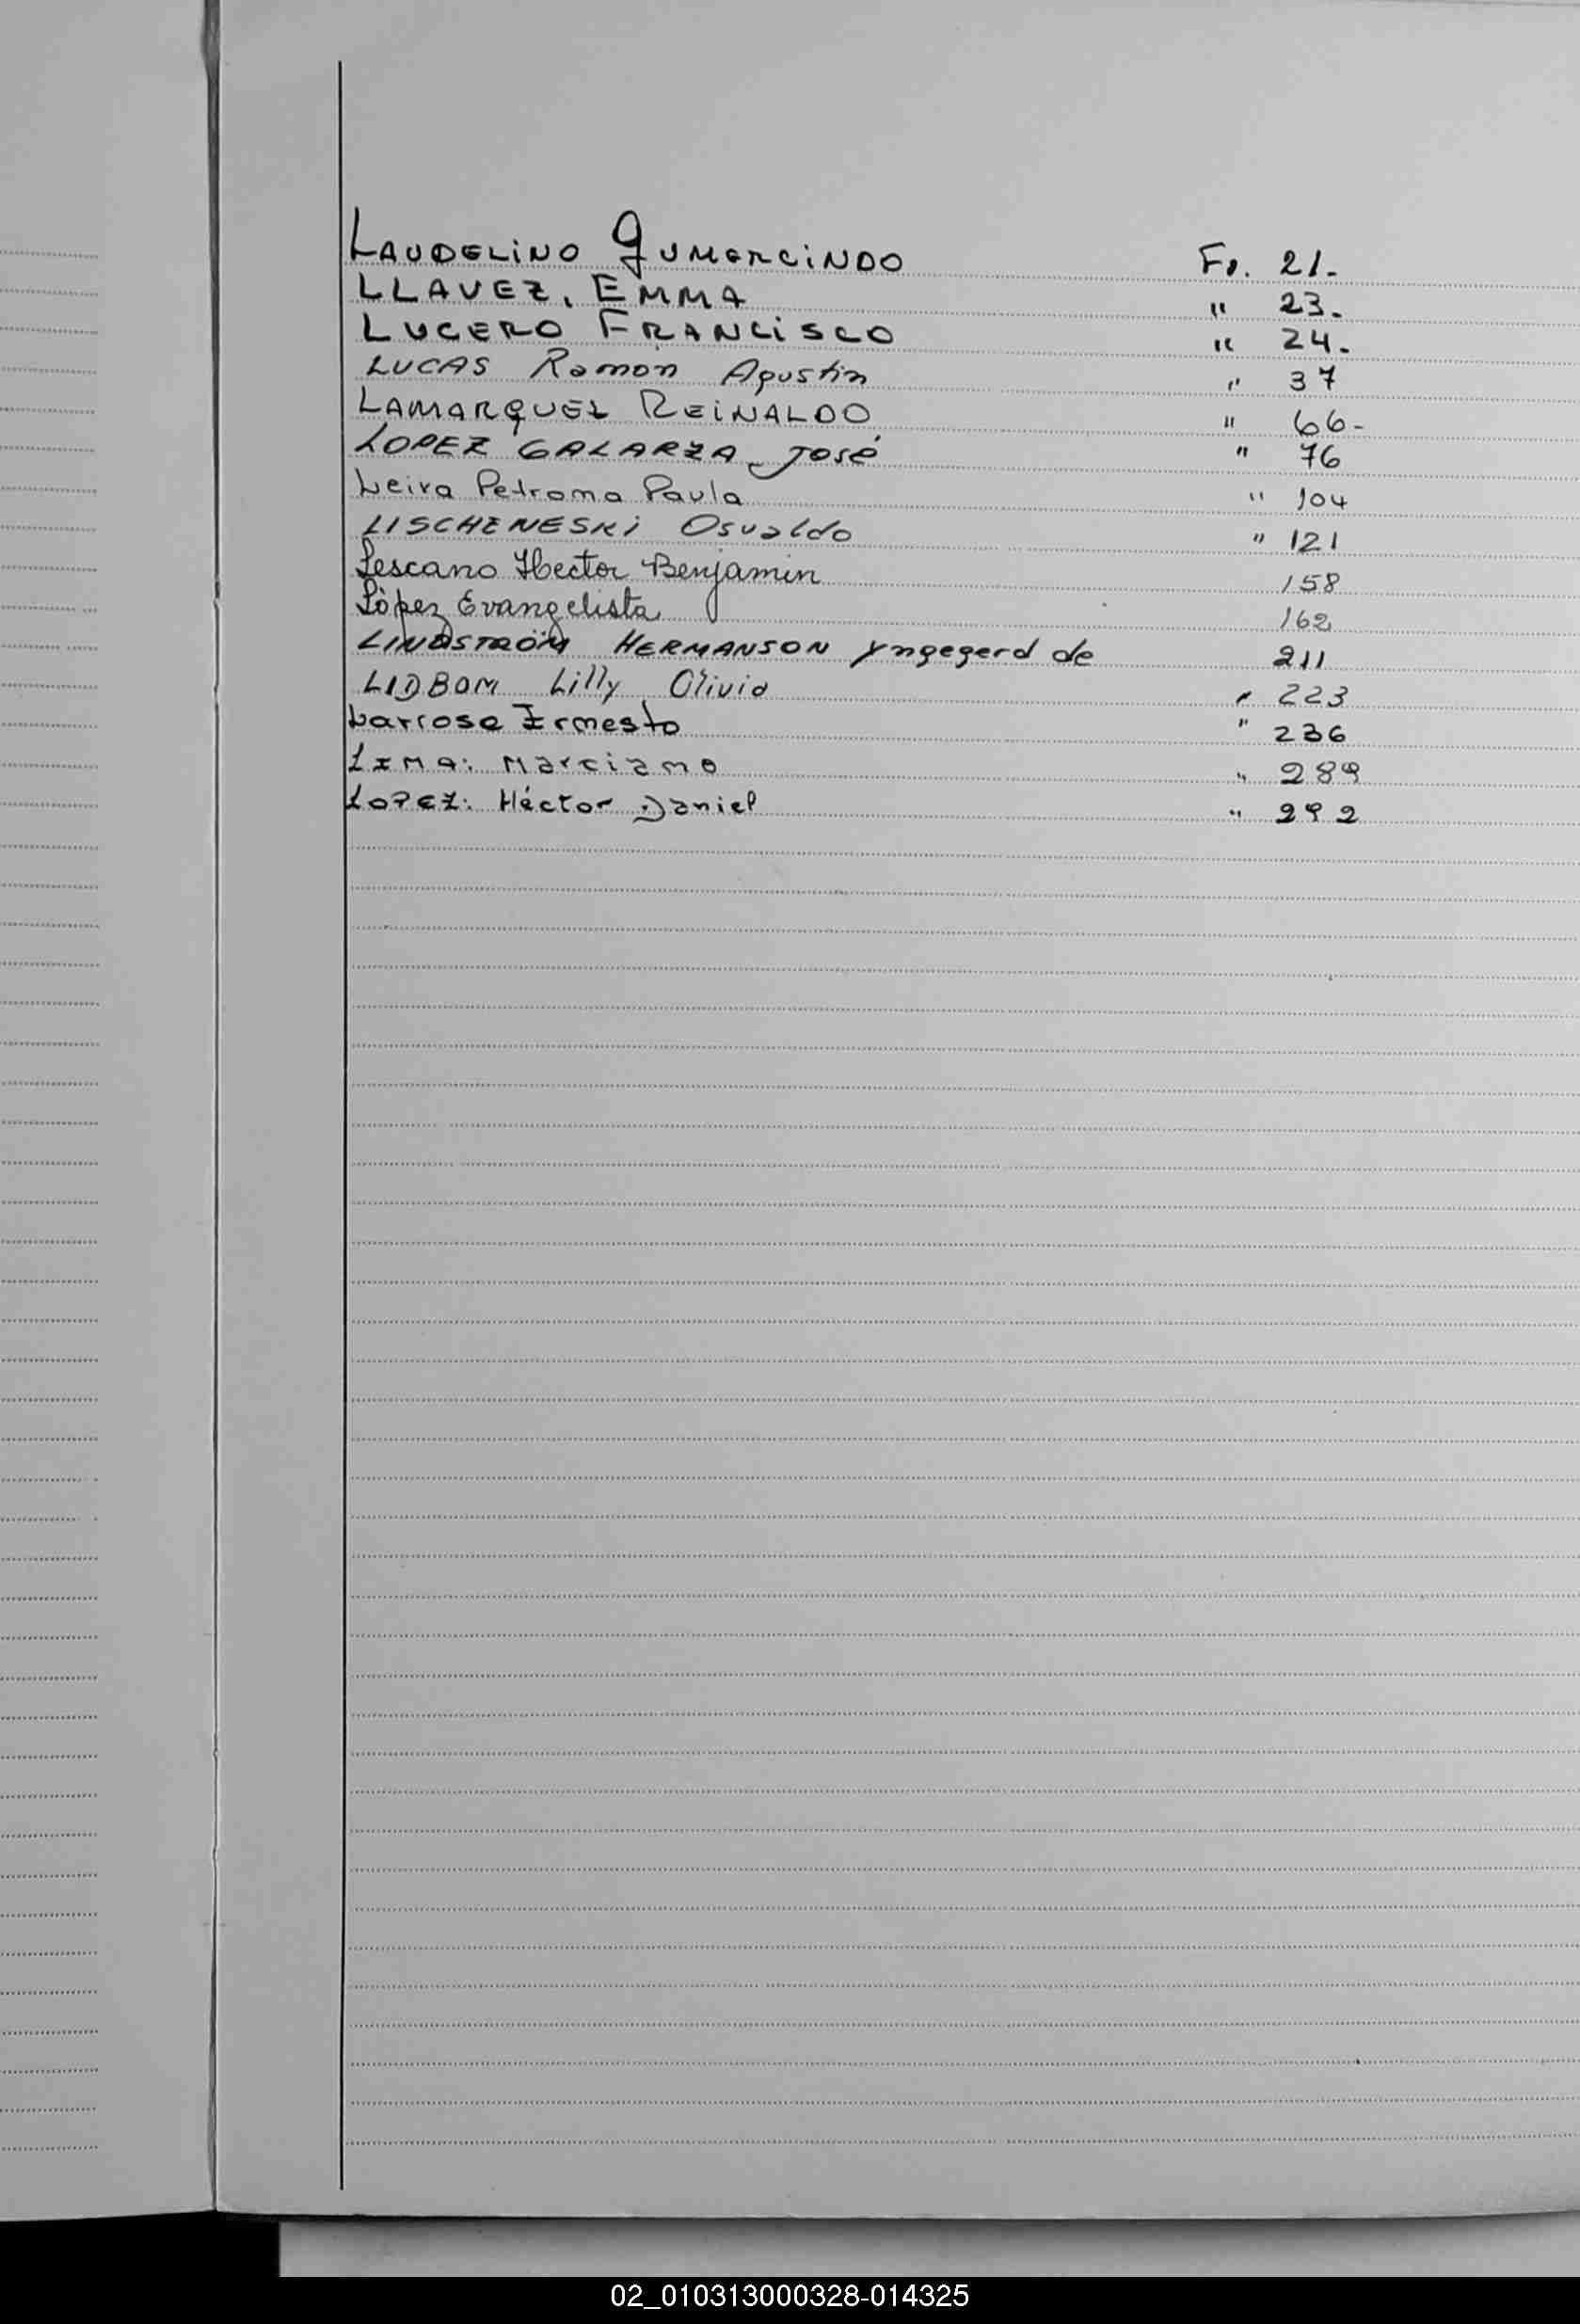 LAUDELINO GUMERCINDO Fo. 21.
LLAVEZ, EMMA " 23.
LUCERO FRANCISCO " 24.
LUCAS Ramón Agustín " 37
LAMARQUEZ REINALDO " 66-
LOPEZ GALARZA José " 76
Leiva Petrona Paula " 104
LISCHENESKi Osvaldo " 121
Lescano Hector Benjamin 158
López Evangelista 162
LINDSTRÖM HERMANSON Yngegerd de 211
LIDBOM Lilly Olivia " 223
Larrosa Ernesto " 236
LEMA: Marciano " 289
LOPEZ: Héctor Daniel " 292
02_010313000328-014325